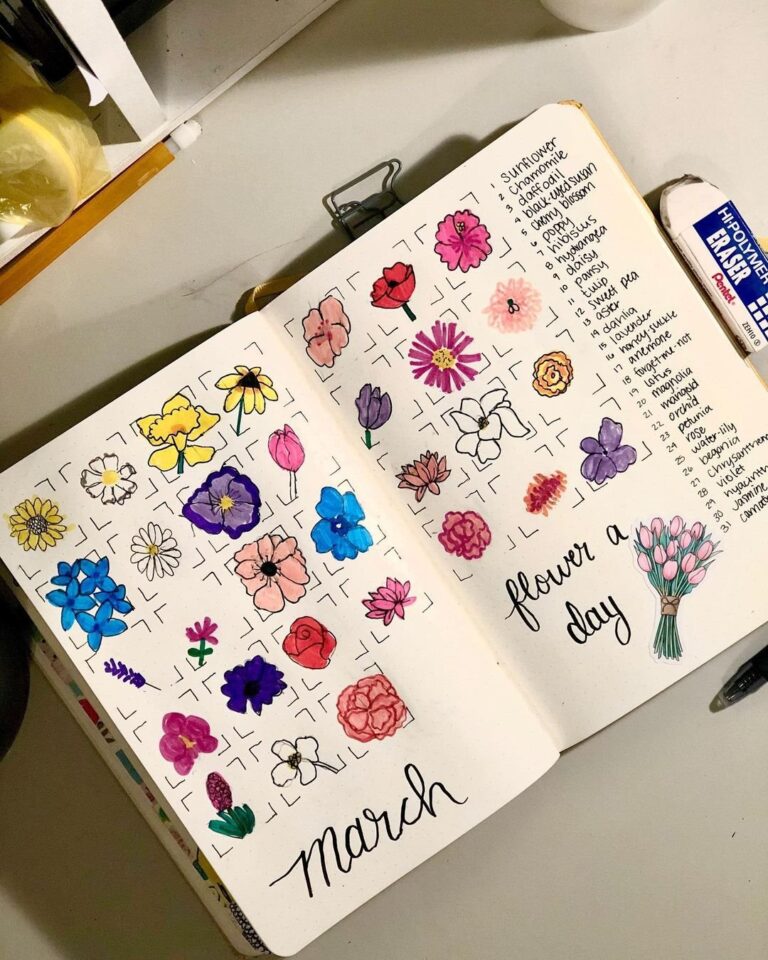 March
1 Sunflower
2 Chamomile
3 daffodil
4 black-eyed susan
5 cherry blossom
6 poppy
7 hibiscus
8 hydrangea
9 daisy
10 pansy
11 tulip
12 sweet pea
13 aster
14 dahlia
15 lavender
16 honey-suckle
17 anemone
18 forget-me-not
19 lotus
20 magnolia
21 marigold
22 orchid
23 petunia
24 rose
25 water-lily
26 begonia
27 Chrysanthem
28 violet
29 hyacinth
30 Jasmine
31 carnat
flower a
day
HI-POLYMER
ERASER
Pentel
ZEH10